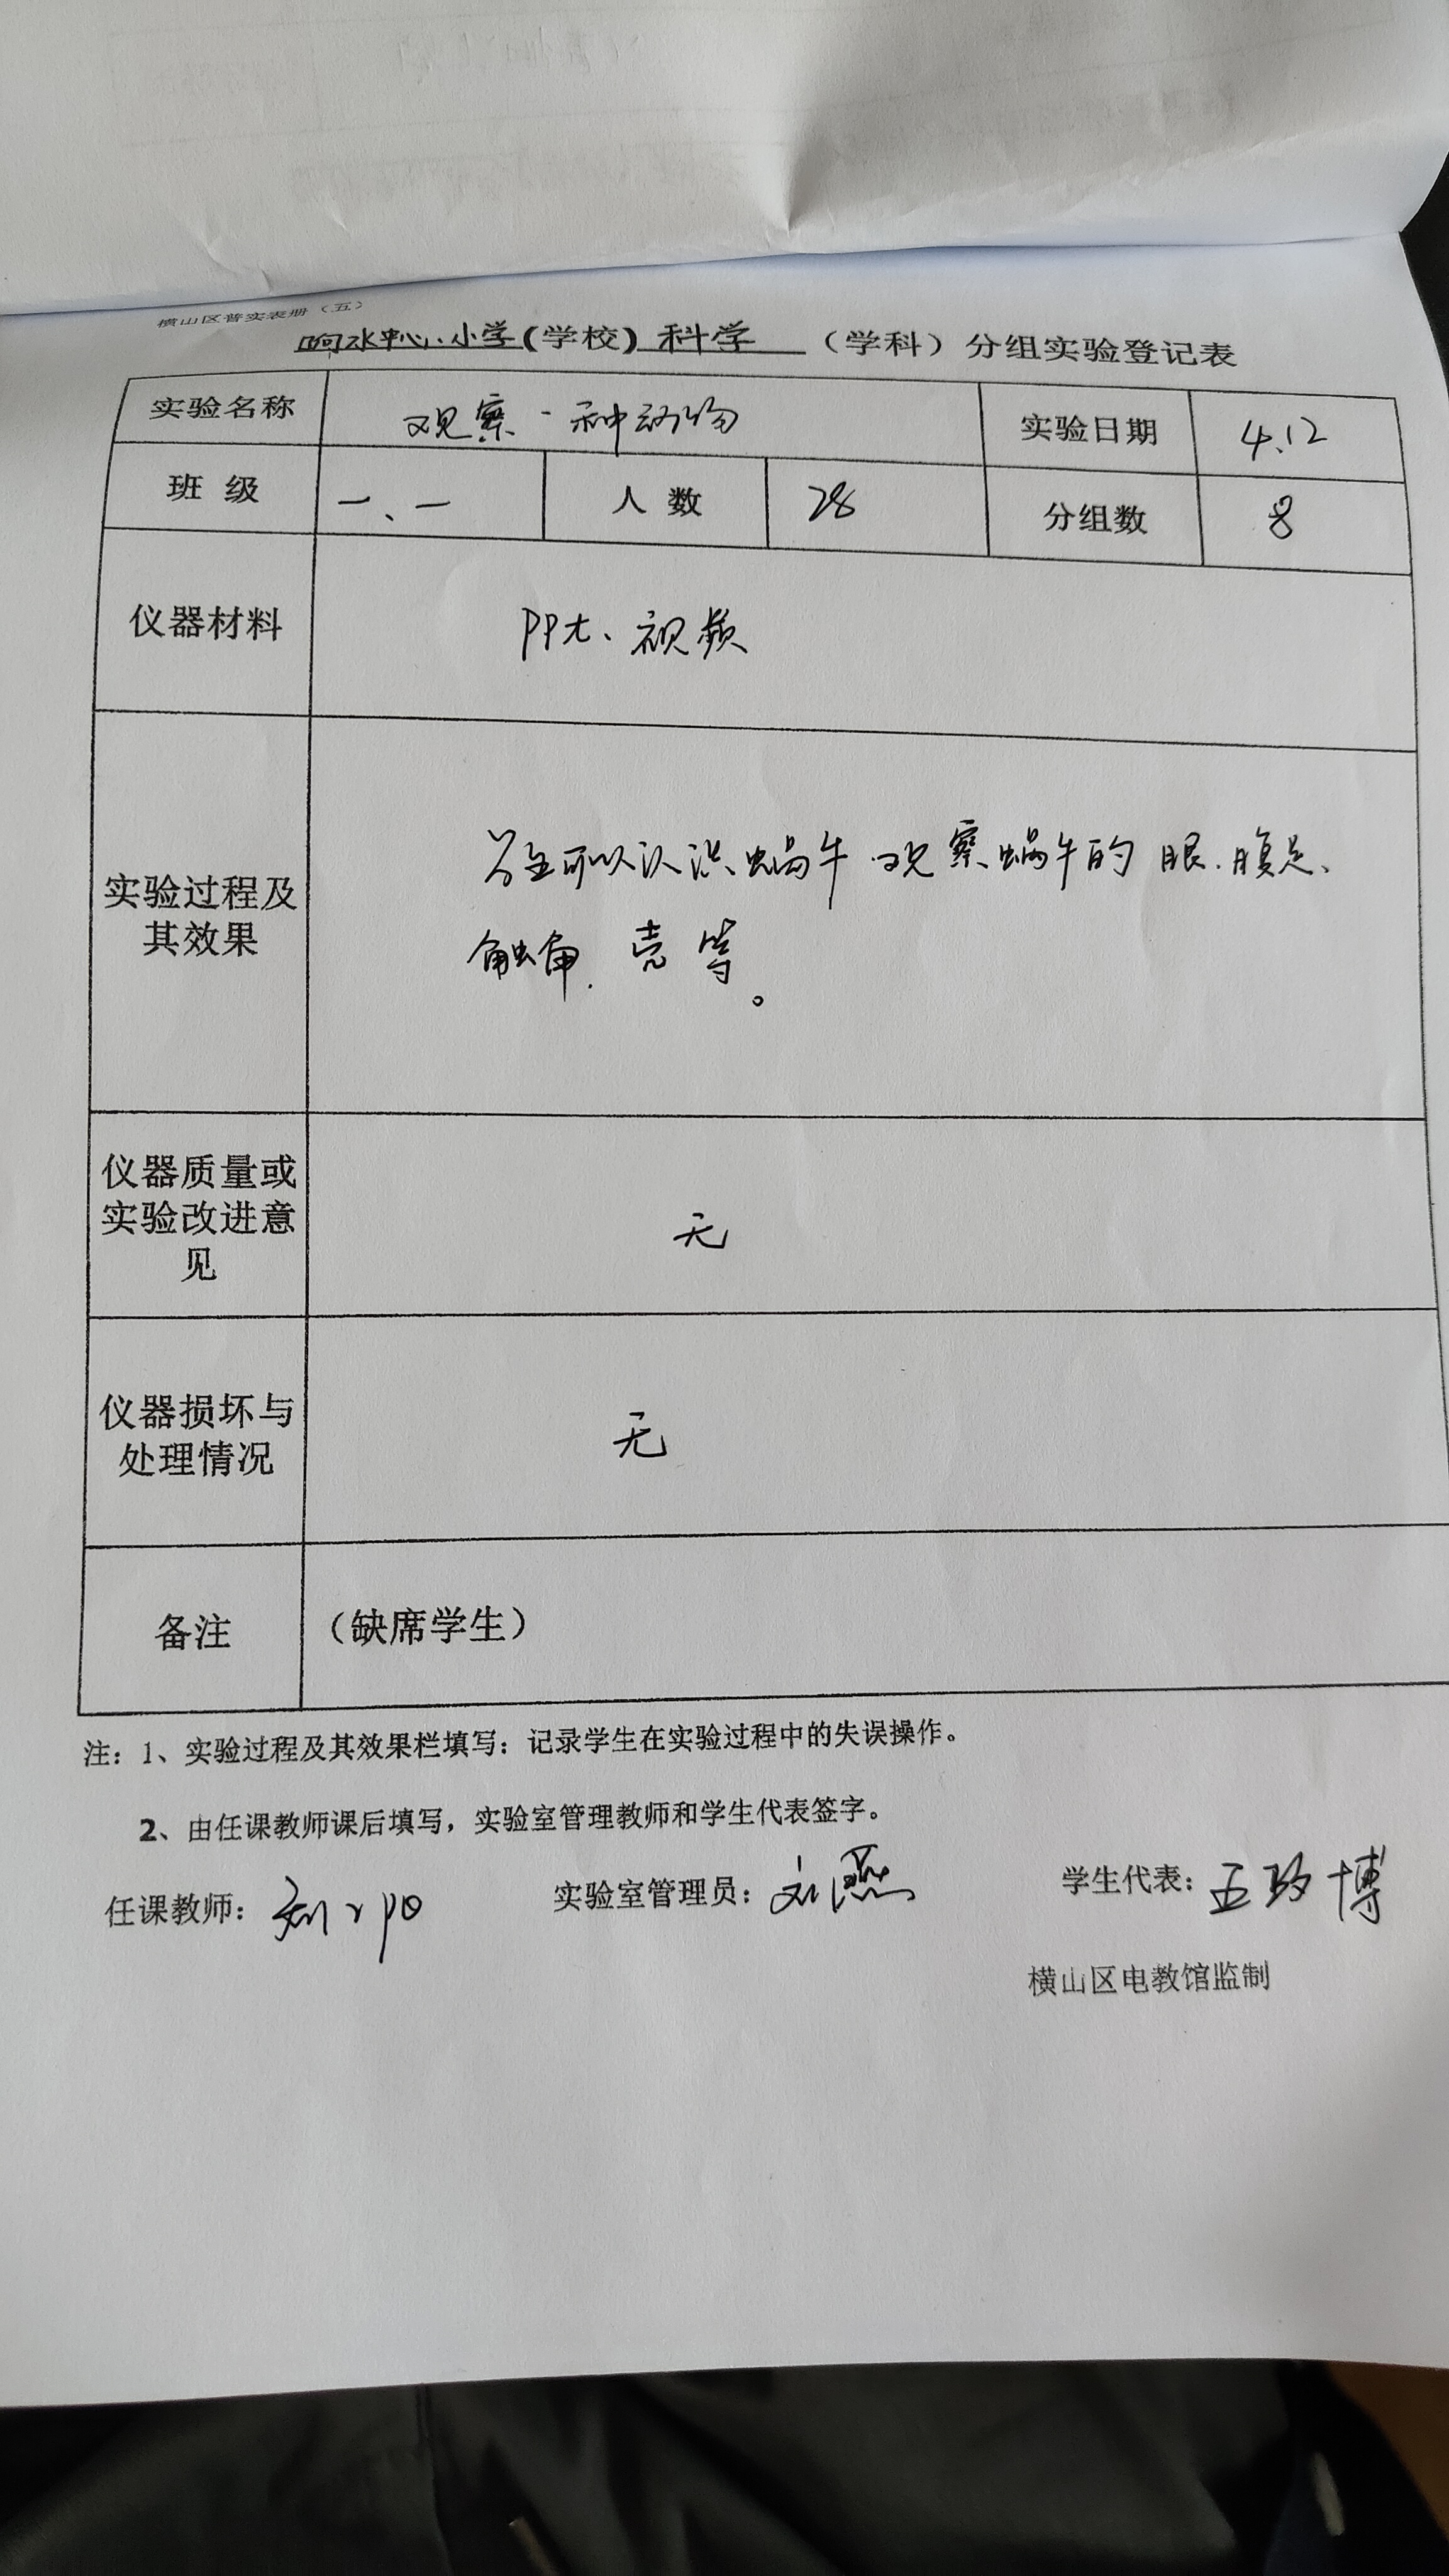 横山区普实表册（五）
响水中心小学(学校) 科学 （学科）分组实验登记表
实验名称 观察一种动物 实验日期 4.12
班 级 一、一 人 数 28 分组数 8
仪器材料 PPt、视频
学生可以认识蜗牛 观察蜗牛的 眼.腹足、
实验过程及
其效果
触角. 壳 等。
仪器质量或
实验改进意
见
无
仪器损坏与
处理情况
无
备注 （缺席学生）
注：1、实验过程及其效果栏填写：记录学生在实验过程中的失误操作。
2、由任课教师课后填写，实验室管理教师和学生代表签字。
任课教师： 实验室管理员：刘燕 学生代表：博
横山区电教馆监制